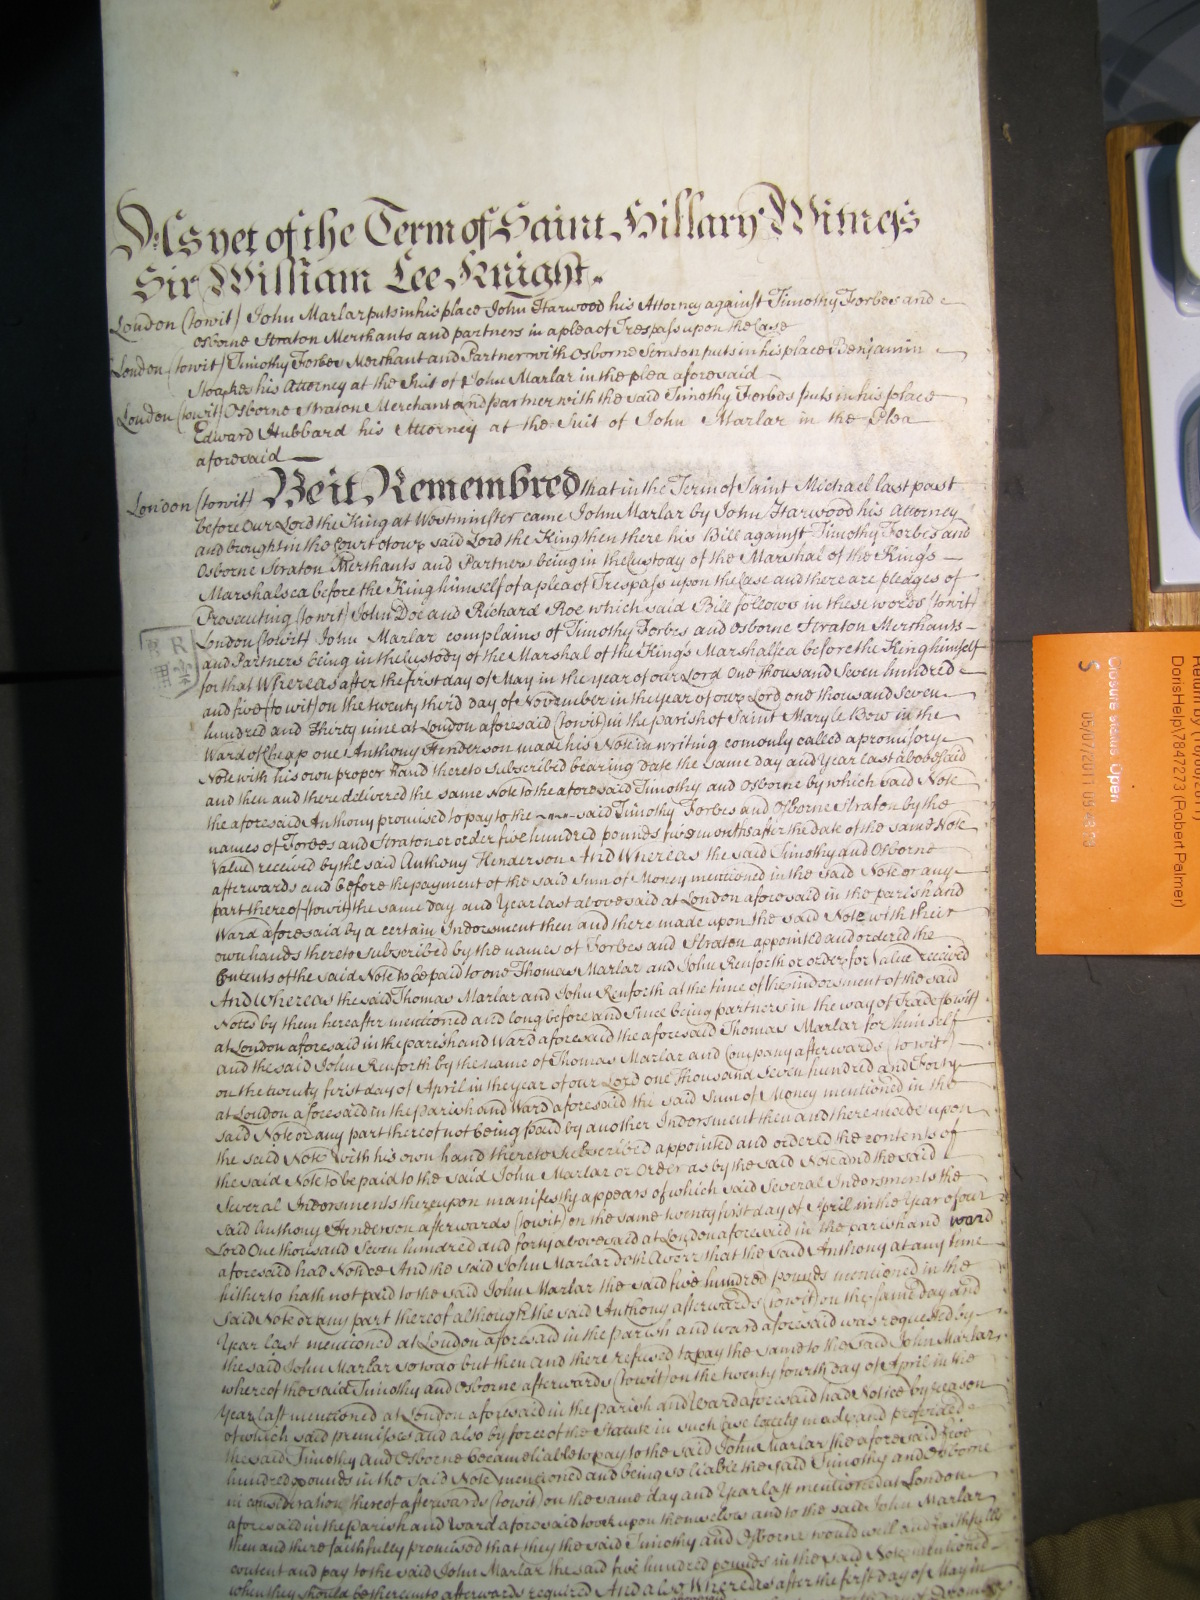 As yet of the Term of Saint Hillary Witness
Sir William Lee Knight.
London (towit) John Marlar puts in his place John Harwood his Attorney against Timothy Forbes and
Osborne Straton Merchants and partners in a plea of Trespass upon the Case
London (towit) Timothy Forbes Merchant and Partner with Osborne Straton puts in his place Benjamin
Stoakes his Attorney at the Suit of John Marlar in the plea aforesaid
London (towit) Osborne Straton Merchant and partner with the said Timothy Forbes puts in his place
Edward Hubbard his Attorney at the Suit of John Marlar in the Plea
aforesaid
London (towit) Be it Remembred that in the Term of Saint Michael last past
before Our Lord the King at Westminster came John Marlar by John Harwood his Attorney
and brought in the Court of our said Lord the King then there his Bill against Timothy Forbes and
Osborne Straton Merchants and Partners being in the Custody of the Marshal of the Kings
Marshalsea before the King himself of a plea of Trespass upon the Case and there are pledges of
Prosecuting (towit) John Doe and Richard Roe which said Bill follows in these words (towit)
London (towit) John Marlar complains of Timothy Forbes and Osborne Straton Merchants
and Partners being in the Custody of the Marshal of the Kings Marshalsea before the King himself
for that Whereas after the first day of May in the year of our Lord One thousand Seven hundred
and five (towit) on the twenty third day of November in the year of our Lord one thousand Seven
hundred and Thirty nine at London aforesaid (towit) in the parish of Saint Mary le Bow in the
Ward of Cheap one Anthony Henderson made his Note in writing comonly called a promissory
Note with his own proper hand thereto Subscribed bearing date the same day and Year last abovesaid
and then and there delivered the same Note to the aforesaid Timothy and Osborne by which said Note
the aforesaid Anthony promised to pay to the said Timothy Forbes and Osborne Straton by the
names of Forbes and Straton or order five hundred pounds five months after the date of the same Note
Value received by the said Anthony Henderson And Whereas the said Timothy and Osborne
afterwards and before the payment of the said sum of Money mentioned in the said Note or any
part thereof (towit) the same day and Year last abovesaid at London aforesaid in the parish and
Ward aforesaid by a certain Indorsment then and there made upon the said Note with their
own hands thereto subscribed by the names of Forbes and Straton appointed and ordered the
Contents of the said Note to be paid to one Thomas Marlar and John Renforth or order for Value received
And Whereas the said Thomas Marlar and John Renforth at the time of the indorsment of the said
Notes by them hereafter mentioned and long before and Since being partners in the way of Trade (towit)
at London aforesaid in the parish and Ward aforesaid the aforesaid Thomas Marlar for himself
and the said John Renforth by the name of Thomas Marlar and Company afterwards (towit)
on the twenty first day of April in the year of our Lord one Thousand Seven hundred and Forty
at London aforesaid in the parish and Ward aforesaid the said Sum of Money mentioned in the
said Note or any part thereof not being paid by another Indorsment then and there made upon
the said Note with his own hand thereto Subscribed appointed and ordered the contents of
the said Note to be paid to the said John Marlar or Order as by the said Note and the said
Several Indorsments thereupon manifestly appears of which said Several Indorsments the
said Anthony Henderson afterwards (towit) on the same twenty first day of April in the Year of our
Lord One thousand Seven hundred and forty abovesaid at London aforesaid in the parish and Ward
aforesaid had Notice And the said John Marlar doth Averr that the said Anthony at any time
hitherto hath not paid to the said John Marlar the said five hundred pounds mentioned in the
said Note or any part thereof although the said Anthony afterwards (towit) on the same day and
Year last mentioned at London aforesaid in the parish and Ward aforesaid was requested by
the said John Marlar so to do but then and there refused to pay the same to the said John Marlar
whereof the said Timothy and Osborne afterwards (towit) on the twenty fourth day of April in the
Year last mentioned at London aforesaid in the parish and Ward aforesaid had Notice by reason
of which said premisses and also by force of the Statute in such Case lately made and provided
the said Timothy and Osborne became liable to pay to the said John Marlar the aforesaid five
hundred pounds in the said Note mentioned and being so liable the said Timothy and Osborne
in consideration thereof afterwards (towit) on the same day and Year last mentioned at London
aforesaid in the parish and Ward aforesaid took upon themselves and to the said John Marlar
then and there faithfully promised that they the said Timothy and Osborne would well and faithfully
content and pay to the said John Marlar the said five hundred pounds in the said Note mentioned
when they should be thereunto afterwards required And also Whereas after the first day of May in
Closure status Open
5
05/07/2011 09:
DorisHelp\7847273 (Robert Palmer)